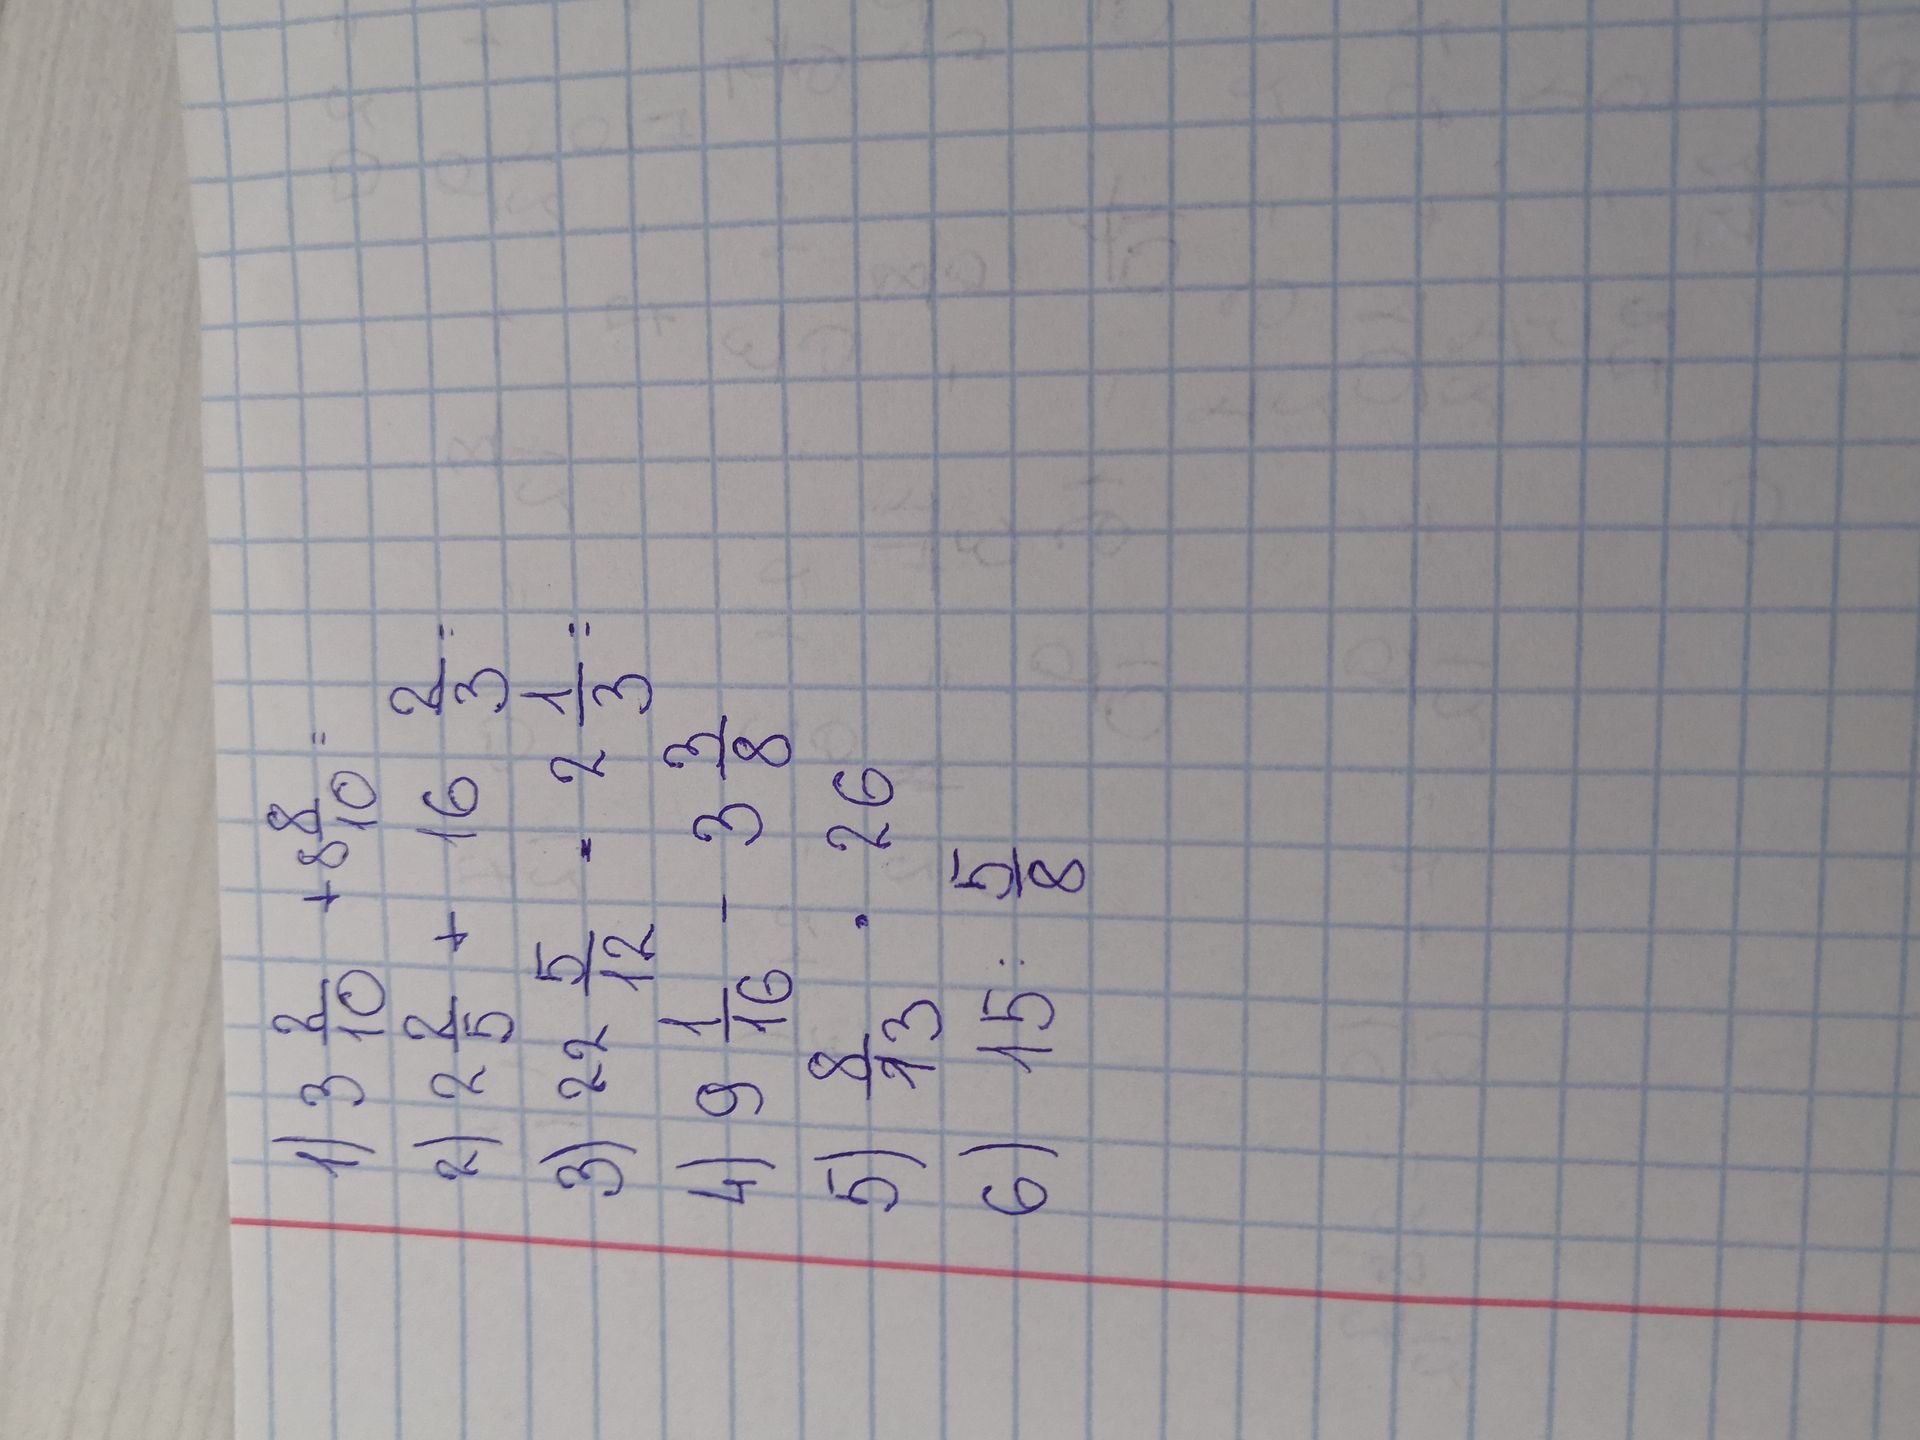 1) 3 2/10 + 8 8/10 =
2) 2 2/5 + 16 2/3 =
3) 22 5/12 - 2 1/3 =
4) 9 1/16 - 3 3/8
5) 8/13 · 26
6) 15 : 5/8